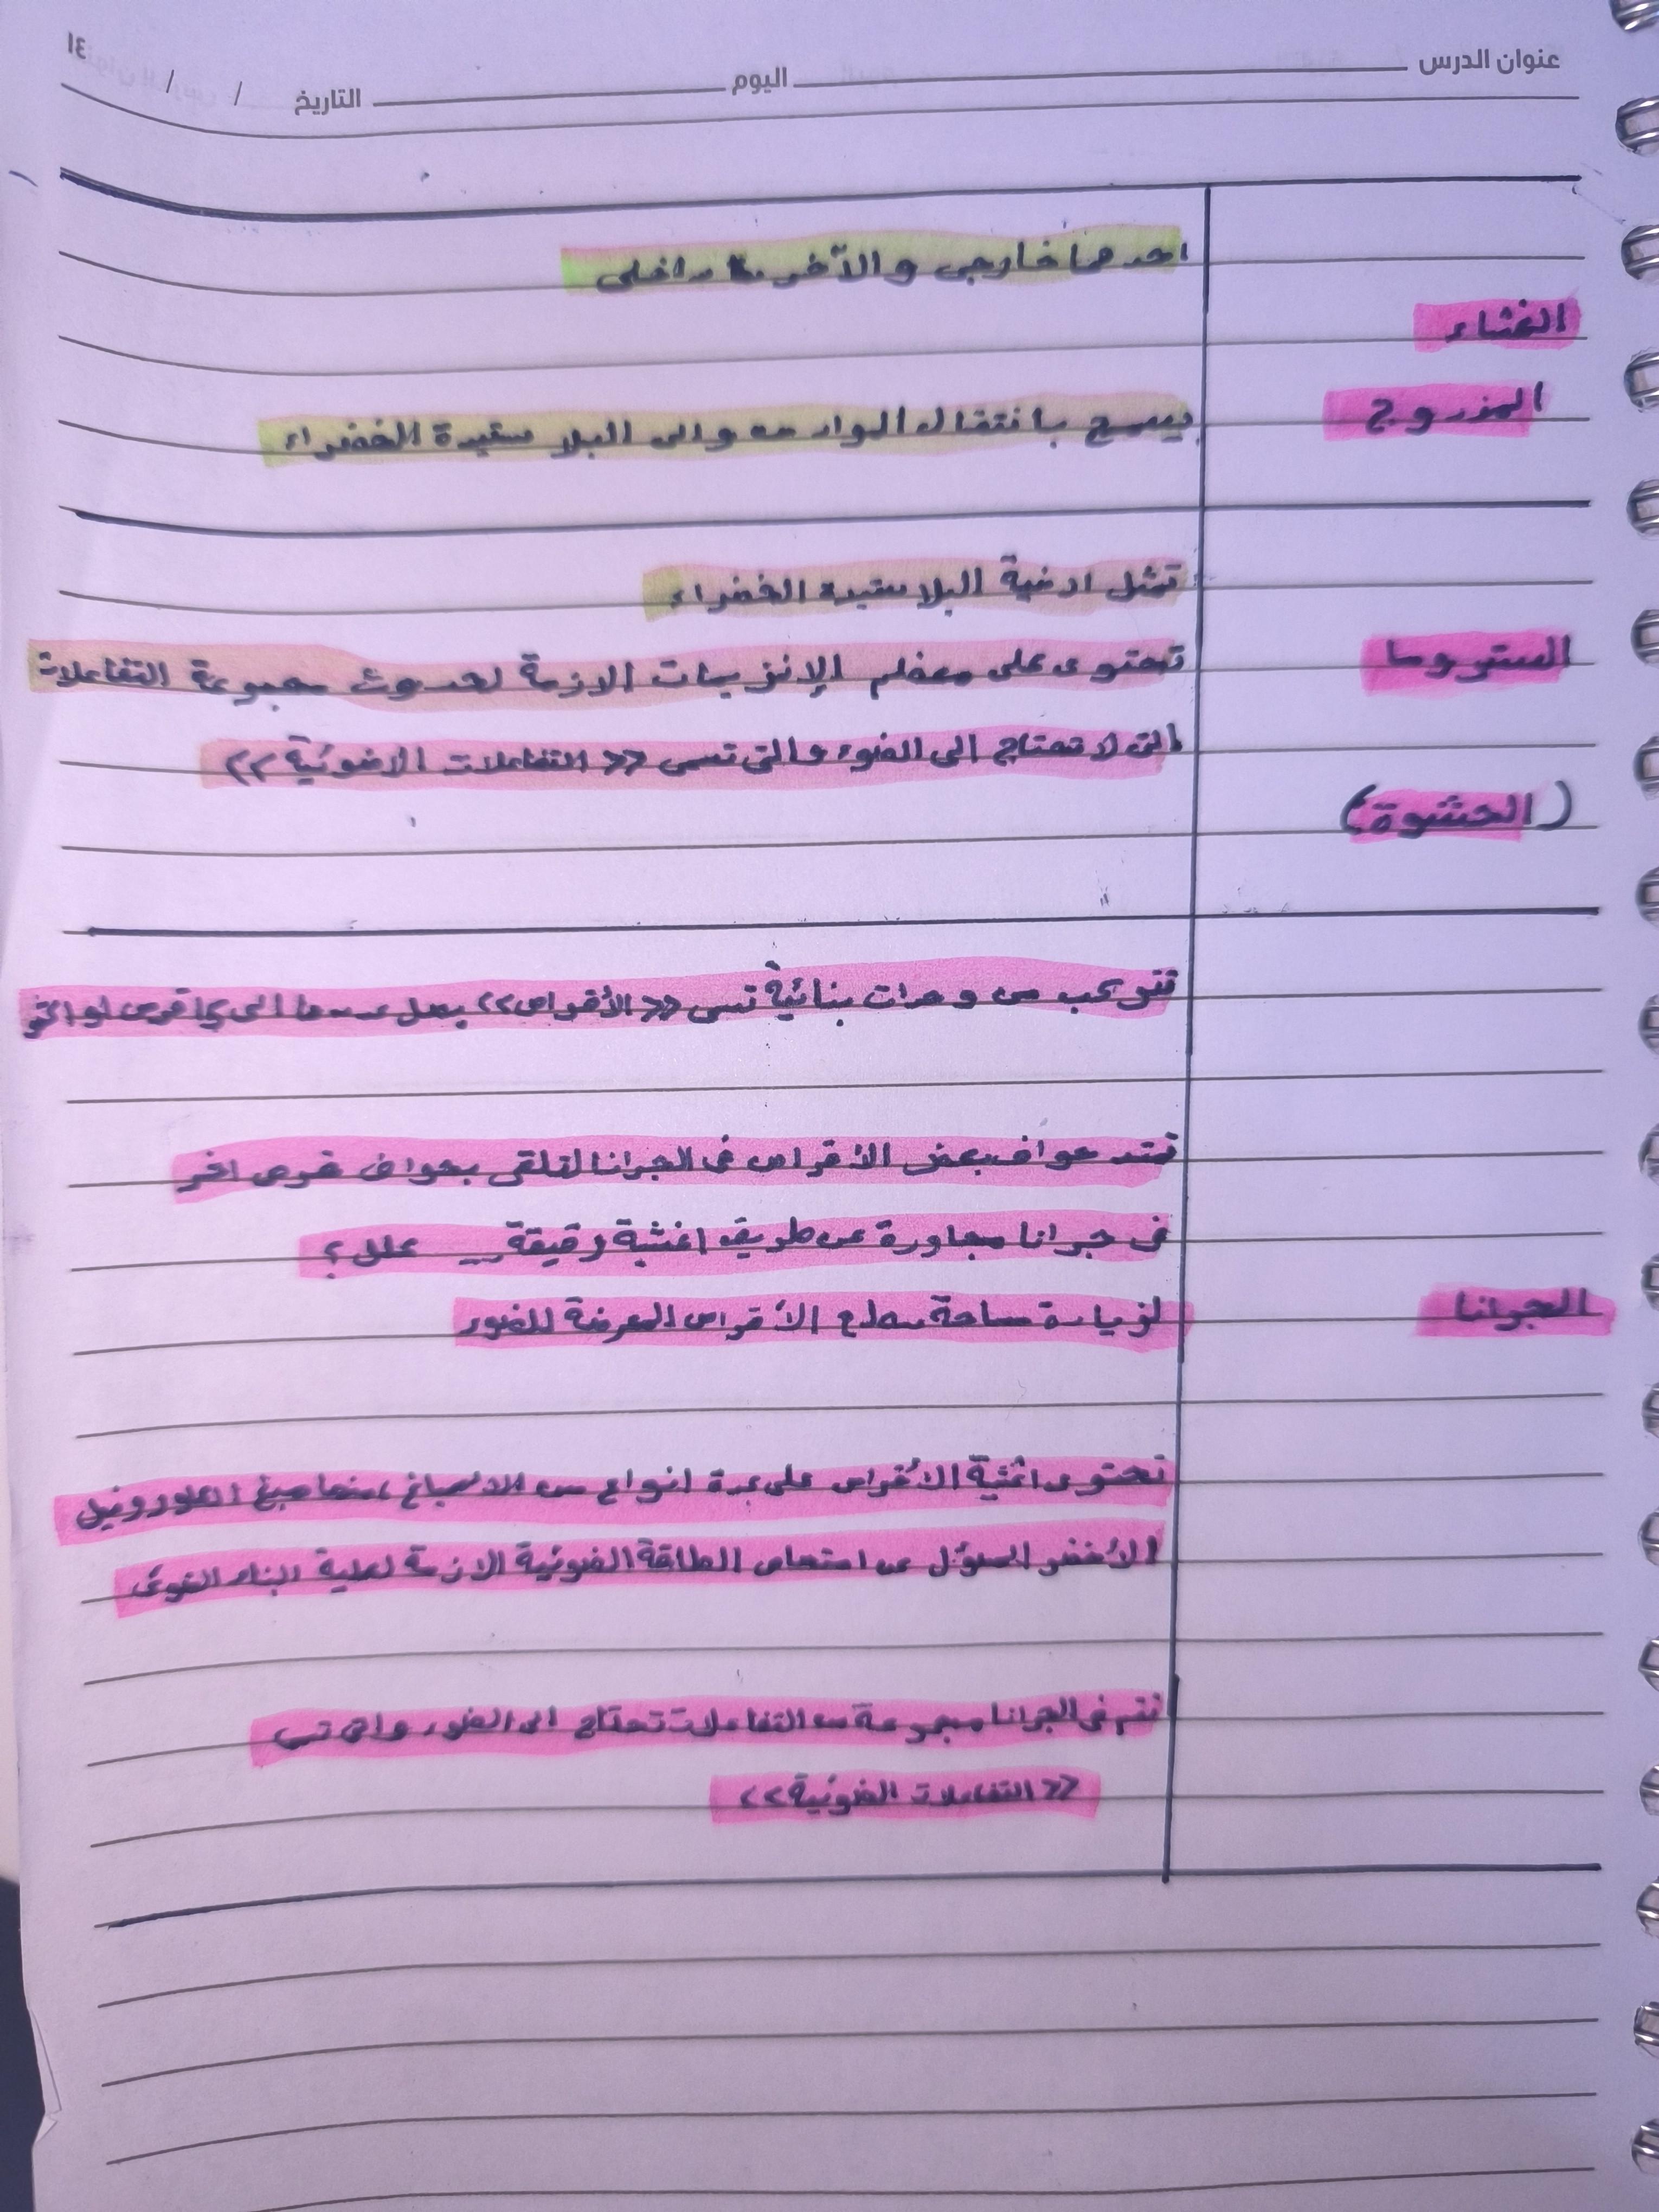 عنوان الدرس اليوم التاريخ / / ١٤
احدهما خارجى والآخر داخلى
الغشاء
المزدوج
يسمح بانتقال المواد من والى البلاستيدة الخضراء
تمثل ارضية البلاستيدة الخضراء
الستروما
تحتوى على معظم الإنزيمات الازمة لحدوث مجموعة التفاعلات
التى لا تحتاج الى الضوء والتى تسمى << التفاعلات الاضوئية >>
(الحشوة)
تتركب من وحدات بنائية تسمى << الأقراص >> يصل عددها الى قرص او اكثر
تمتد حواف بعض الأقراص فى الجرانا لتلقى بحواف قرص اخر
فى جرانا مجاورة عن طريق اغشية رقيقة علل ؟
الجرانا
لزيادة مساحة سطح الأقراص المعرضة للضوء
تحتوى اغشية الأقراص على عدة انواع من الاصباغ منها صبغ الكلوروفيل
الأخضر المسؤل عن امتصاص الطاقة الضوئية الازمة لعملية البناء الضوئى
تتم فى الجرانا مجموعة من التفاعلات تحتاج الى الضوء والتى تسمى
<< التفاعلات الضوئية >>